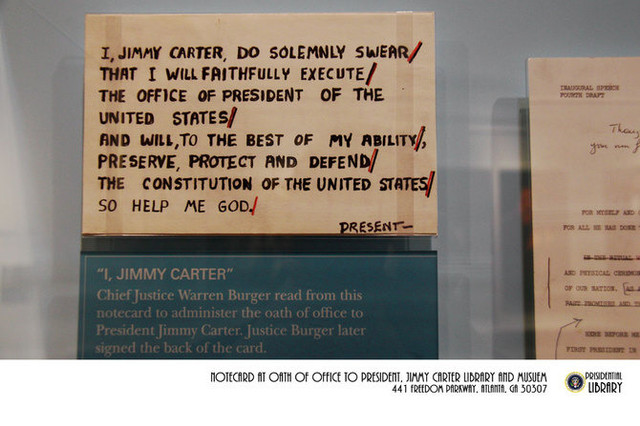 I, JIMMY CARTER, DO SOLEMNLY SWEAR/
THAT I WILL FAITHFULLY EXECUTE/
THE OFFICE OF PRESIDENT OF THE
UNITED STATES/
AND WILL, TO THE BEST OF MY ABILITY/,
PRESERVE, PROTECT AND DEFEND/
THE CONSTITUTION OF THE UNITED STATES/
SO HELP ME GOD./
PRESENT—
"I, JIMMY CARTER"
Chief Justice Warren Burger read from this
notecard to administer the oath of office to
President Jimmy Carter. Justice Burger later
signed the back of the card.
INAUGURAL SPEECH
FOURTH DRAFT
FOR MYSELF AND
FOR ALL HE HAS DONE
THE RITUAL
AND PHYSICAL
OF OUR NATION.
PAST PROMISES AND
HERE BEFORE
FIRST PRESIDENT IN
NOTECARD AT OATH OF OFFICE TO PRESIDENT, JIMMY CARTER LIBRARY AND MUSUEM
441 FREEDOM PARKWAY, ATLANTA, GA 30307
PRISIDENTIAL
LIBRARY